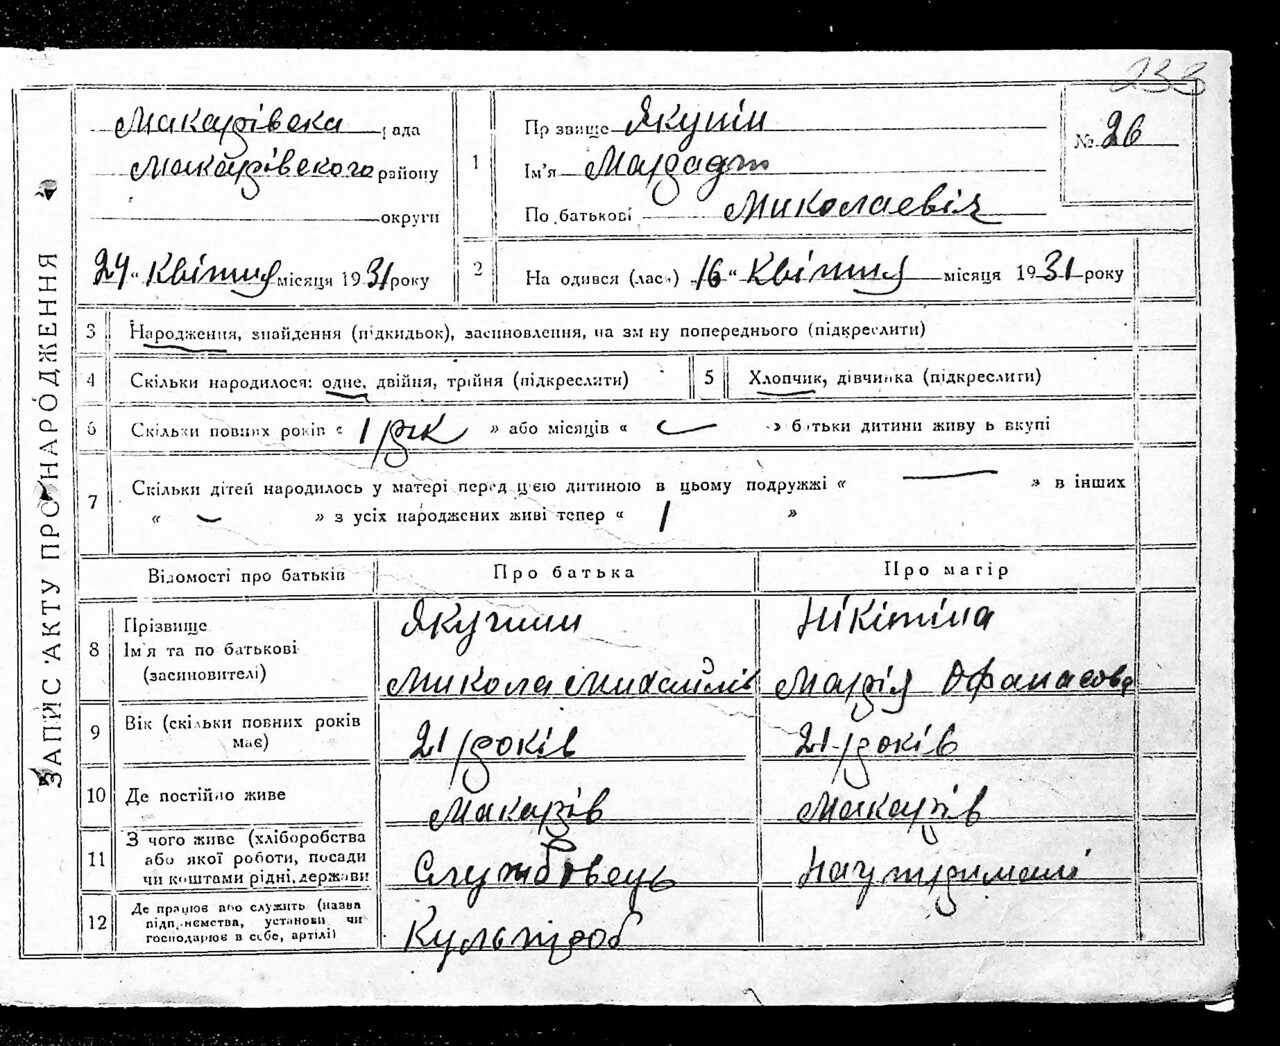 233
ЗАПИС АКТУ ПРО НАРОДЖЕННЯ
Макарівська рада
Макарівского району
округи
24 „ Квітня місяця 1931 року
1
Прізвище Якушін
Ім'я
По батькові Миколаевіч
№ 26
2
На одився (лась) 16 „ Квітня місяця 1931 року
3
Народження, знайдення (підкидьок), засиновлення, на зміну попереднього (підкреслити)
4
Скільки народилося: одне, двійня, трійня (підкреслити)
5
Хлопчик, дівчинка (підкреслити)
6
Скільки повних років « 1 рік » або місяців « — » батьки дитини живуть вкупі
7
Скільки дітей народилось у матері перед цією дитиною в цьому подружжі « — » в інших
« — » з усіх народжених живі тепер « 1 »
Відомості про батьків
Про батька
Про матір
8
Прізвище
Ім'я та по батькові
(засиновителі)
Якушин
Микола Михайлів
Нікітіна
Марія Офанасова
9
Вік (скільки повних років
має)
21 років
21 років
10
Де постійно живе
Макарів
Макарів
11
З чого живе (хліборобства
або якої роботи, посади
чи коштами рідні, держави
Службовець
На утримані
12
Де працює або служить (назва
підприємства, установи чи
господарює в себе, артілі)
Культроб